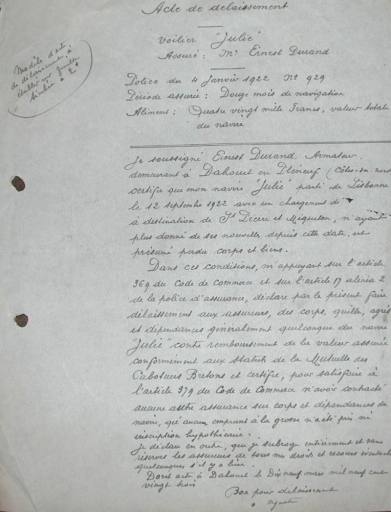 Acte de délaissement
Voilier "Julie"
Assuré : Mr Ernest Durand
Modèle d'acte
de délaissement à
établir sur feuille
timbrée
Police du 4 Janvier 1922 No 929
Période assurée : Douze mois de navigation
Aliment : Quatre vingt mille Francs, valeur totale
du navire
Je soussigné Ernest Durand, Armateur
demeurant à Dahouet en Pléneuf (Côtes-du-Nord
certifie que mon navire "Julie" parti de Lisbonne
le 12 septembre 1922 avec un chargement de
à destination de St Pierre et Miquelon, n'ayant
plus donné de ses nouvelles depuis cette date, est
présumé perdu corps et biens.
Dans ces conditions, m'appuyant sur l'article
369 du Code de Commerce et sur l'article 17 alinéa 2
de la police d'assurance, déclare par le présent faire
délaissement aux assureurs, des corps, quille, agrès
et dépendances généralement quelconques du navire
"Julie" contre remboursement de la valeur assurée
conformément aux Statuts de la Mutuelle des
Caboteurs Bretons et certifie, pour satisfaire à
l'article 379 du Code de Commerce n'avoir contracté
aucune autre assurance sur corps et dépendances du
navire, qu'aucun emprunt à la grosse n'a été pris ni
inscription hypothécaire.
Je déclare en outre, que je subroge entièrement et sans
réserves les assureurs de tous mes droits et recours éventuels
quelconques s'il y a lieu.
Dont acte à Dahouet le Dix neuf mars mil neuf cent
vingt trois
Bon pour délaissement